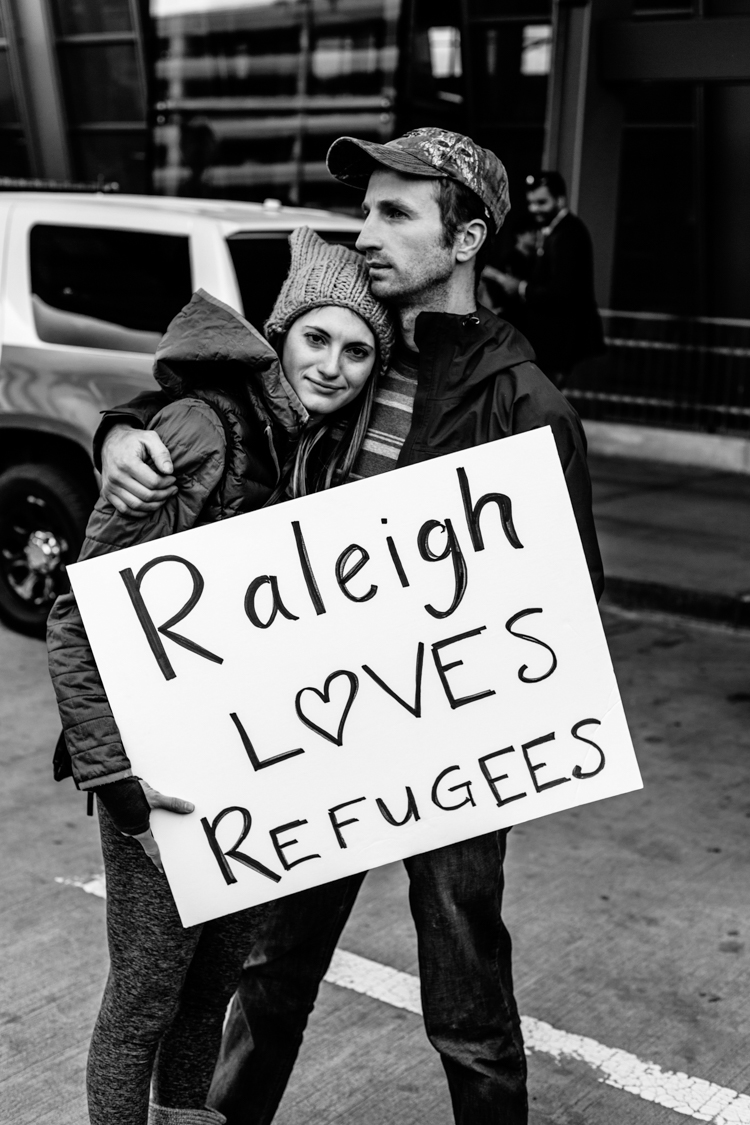 Raleigh
L♡VES
REFUGEES